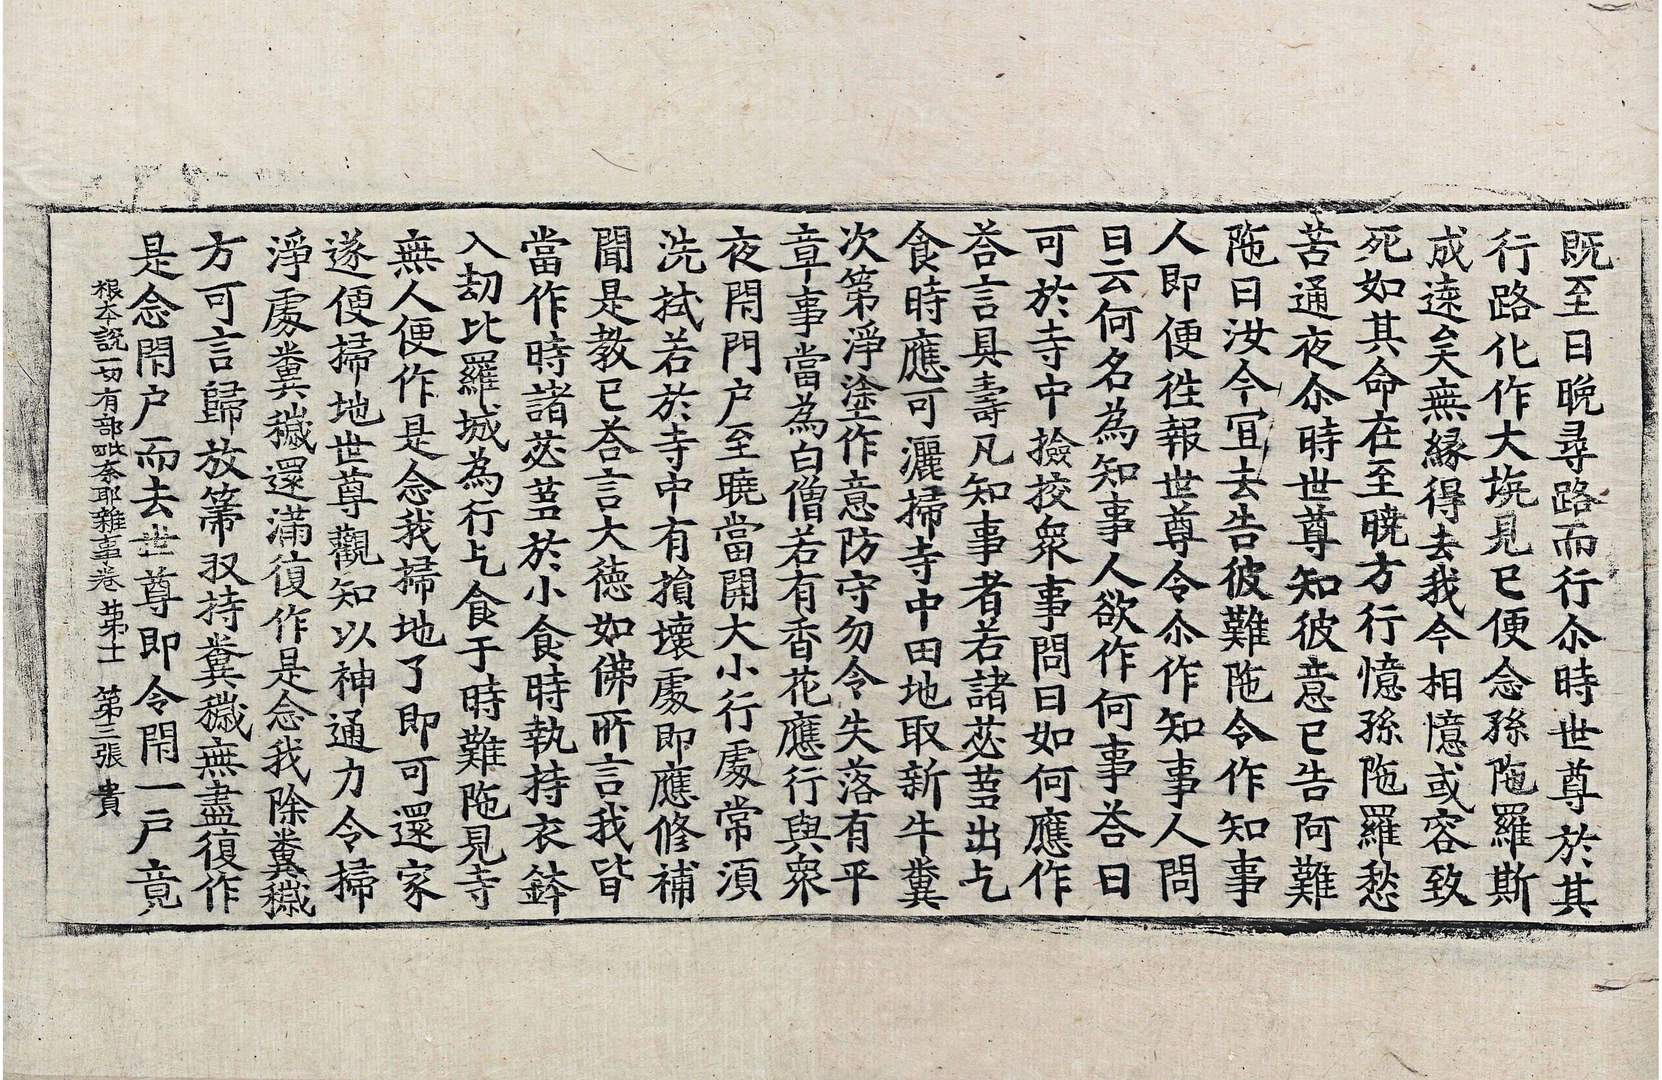 既至日晩尋路而行尒時世尊於其
行路化作大坑見已便念孫陁羅斯
成遠矣無縁得去我今相憶或容致
死如其命在至曉方行憶孫陁羅愁
苦通夜尒時世尊知彼意已告阿難
陁曰汝今冝去告彼難陁令作知事
人即便徃報世尊令尒作知事人問
曰云何名為知事人欲作何事荅曰
可於寺中撿挍衆事問曰如何應作
荅言具壽凡知事者若諸苾蒭出乞
食時應可灑掃寺中田地取新牛糞
次第淨塗作意防守勿令失落有平
章事當為白僧若有香花應行與衆
夜閇門户至曉當開大小行處常湏
洗拭若於寺中有損壞處即應修補
聞是教已荅言大徳如佛所言我皆
當作時諸苾蒭於小食時執持衣鉢
入劫比羅城為行乞食于時難陁見寺
無人便作是念我掃地了即可還家
遂便掃地世尊觀知以神通力令掃
淨處糞穢還滿復作是念我除糞穢
方可言歸放箒収持糞穢無盡復作
是念閇户而去世尊即令閇一户竟
根本說一切有部毗奈耶雜事卷苐十一 第三張 貴